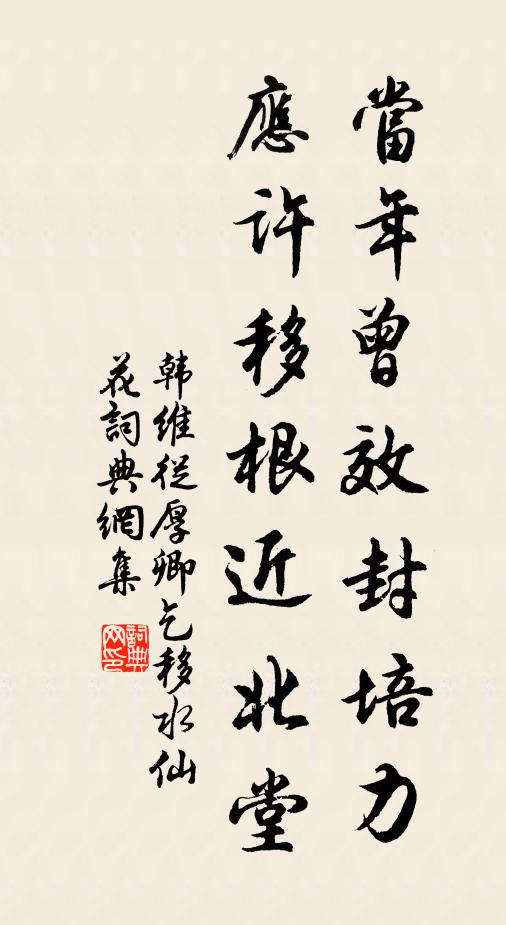 當年曾效封培力
應許移根近北堂
韩維從厚卿乞移水仙
花詞典網集
詞典网印